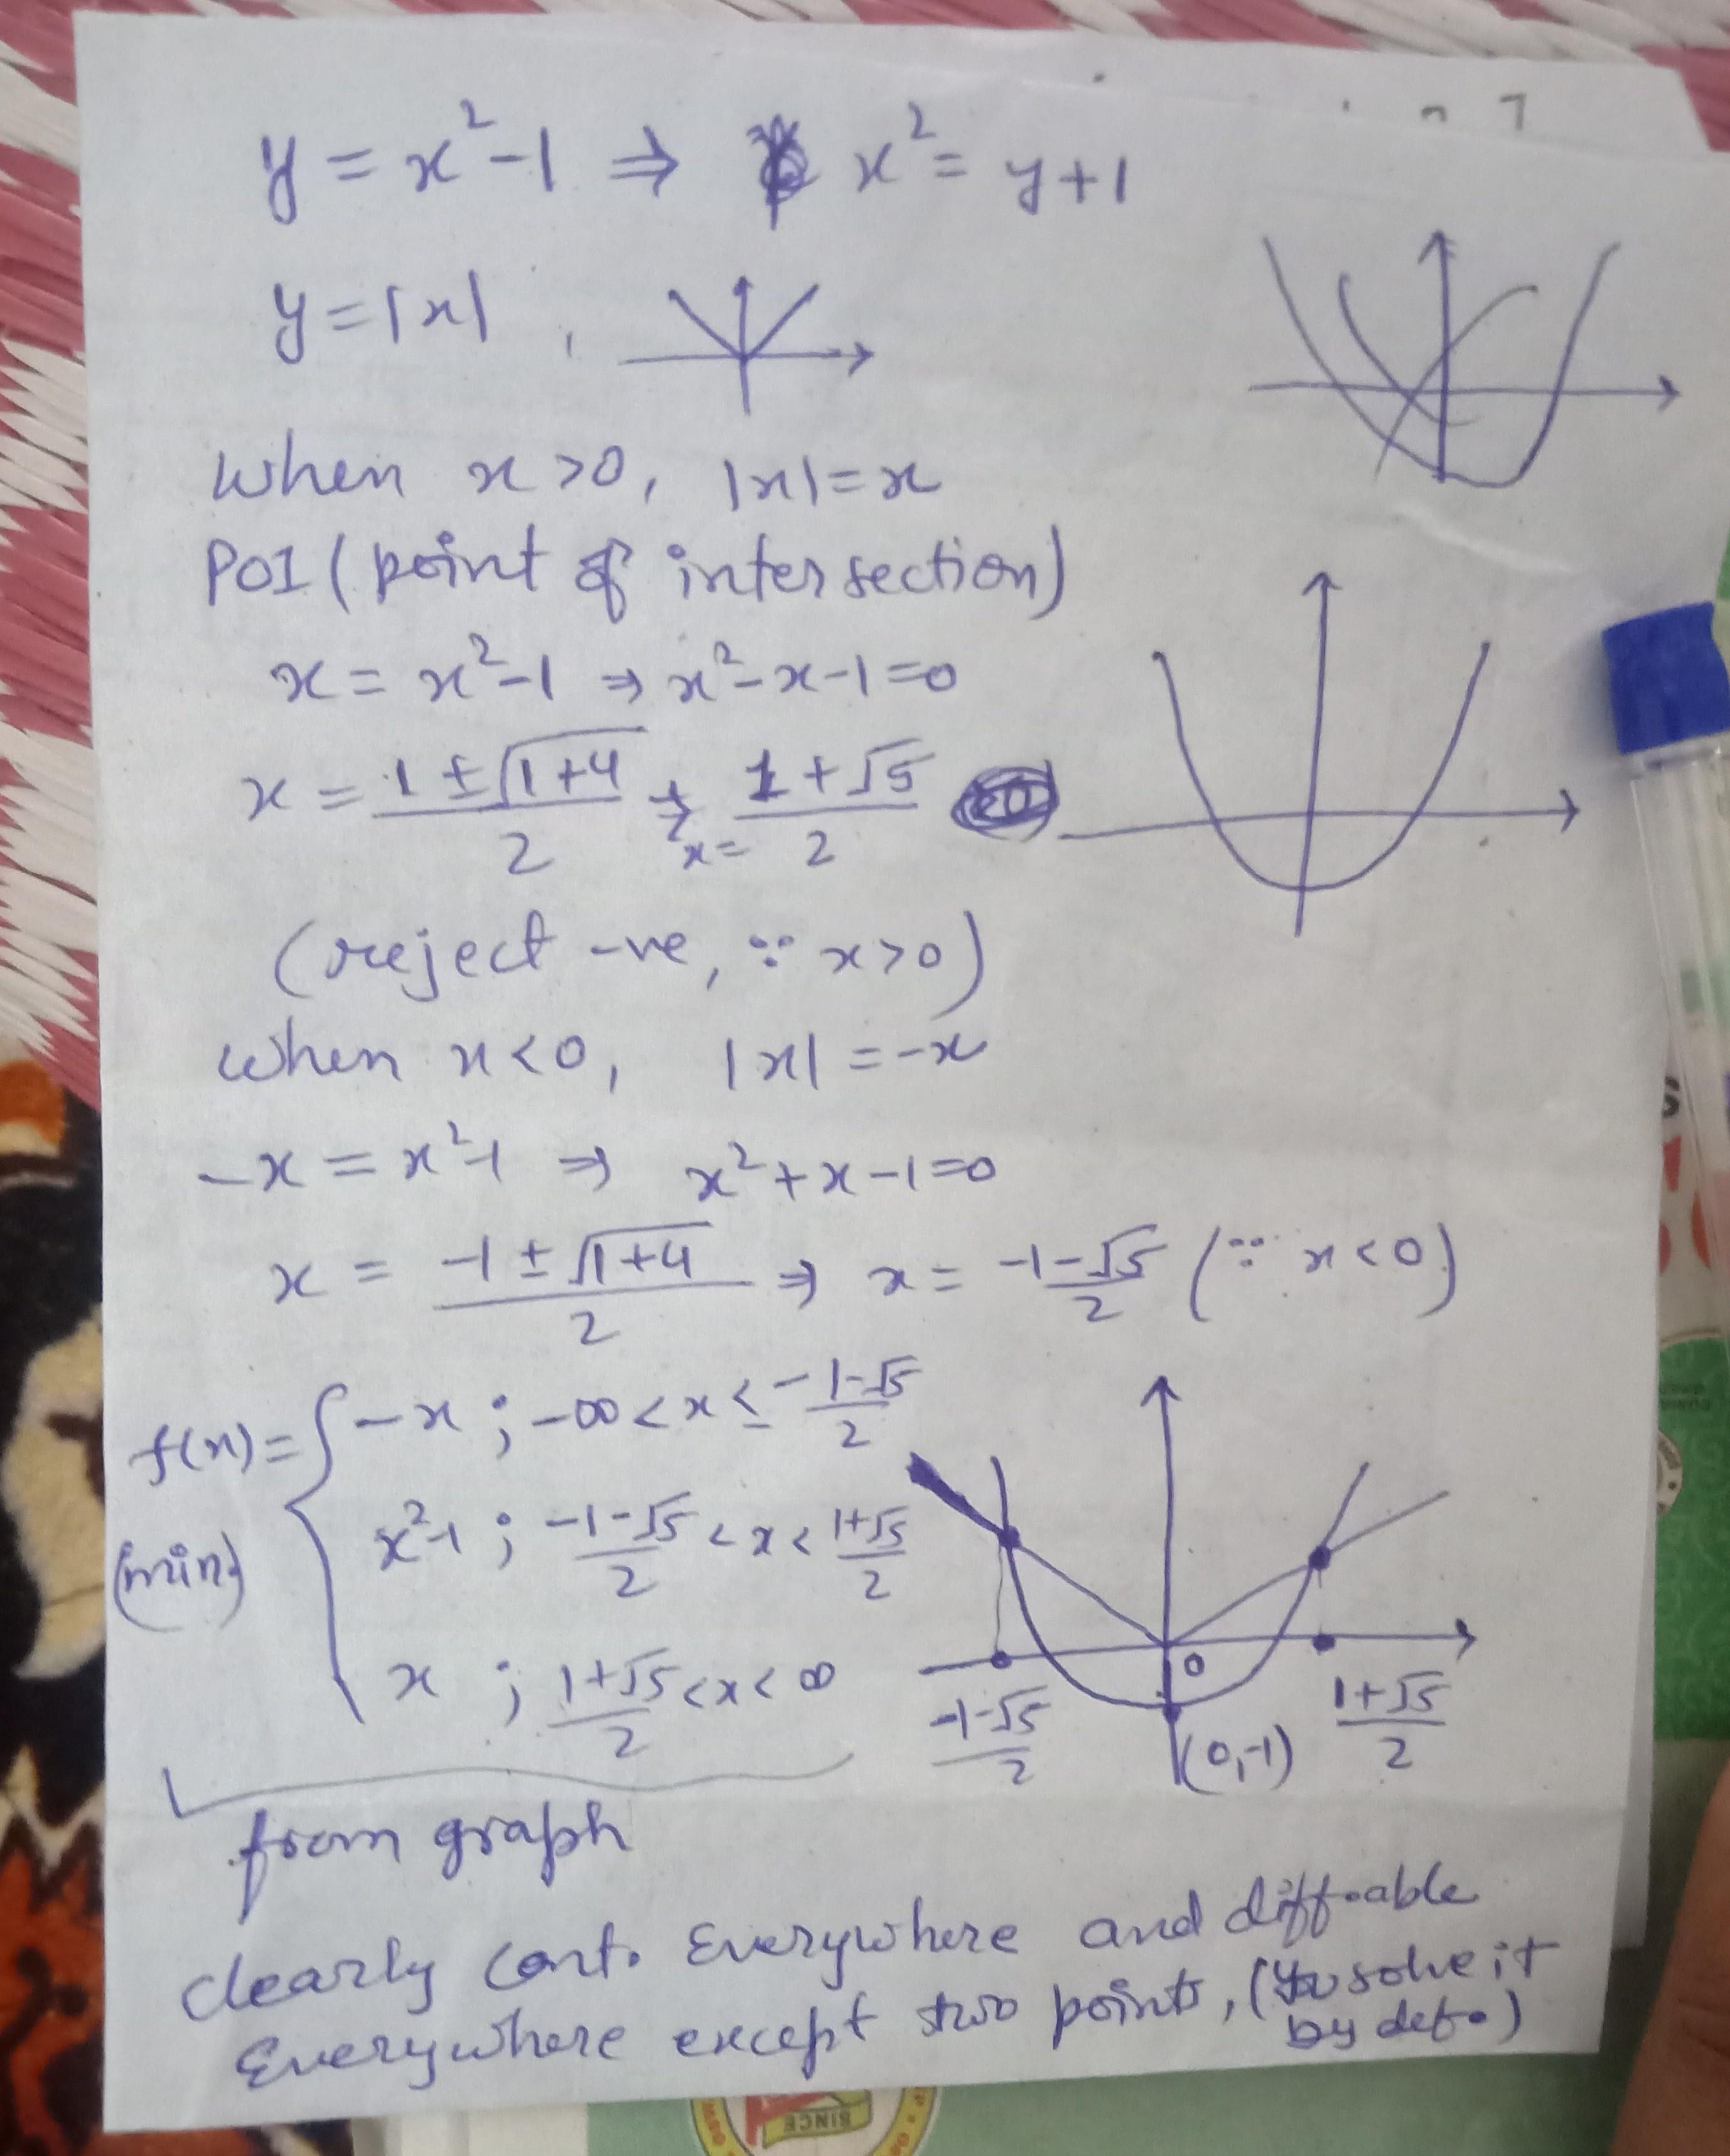 y = x²-1 ⇒ x² = y+1
y = |x| ,
when x >0, |x|=x
POI (point of intersection)
x = x²-1 ⇒ x²-x-1=0
x = 1±√1+4 / 2 ⇒ x= 1+√5 / 2
(reject -ve, ∵ x>0)
when x<0, |x| = -x
-x = x²-1 ⇒ x²+x-1=0
x = -1±√1+4 / 2 ⇒ x = -1-√5 / 2 (∵ x<0)
f(x) = { -x ; -∞<x≤ -1-√5 / 2
(min) x²-1 ; -1-√5 / 2 <x< 1+√5 / 2
x ; 1+√5 / 2 <x<∞
0
-1-√5 / 2
1+√5 / 2
(0,-1)
from graph
clearly cont. Everywhere and diff.able
Everywhere except two points, (You solve it
by def.)
SINCE